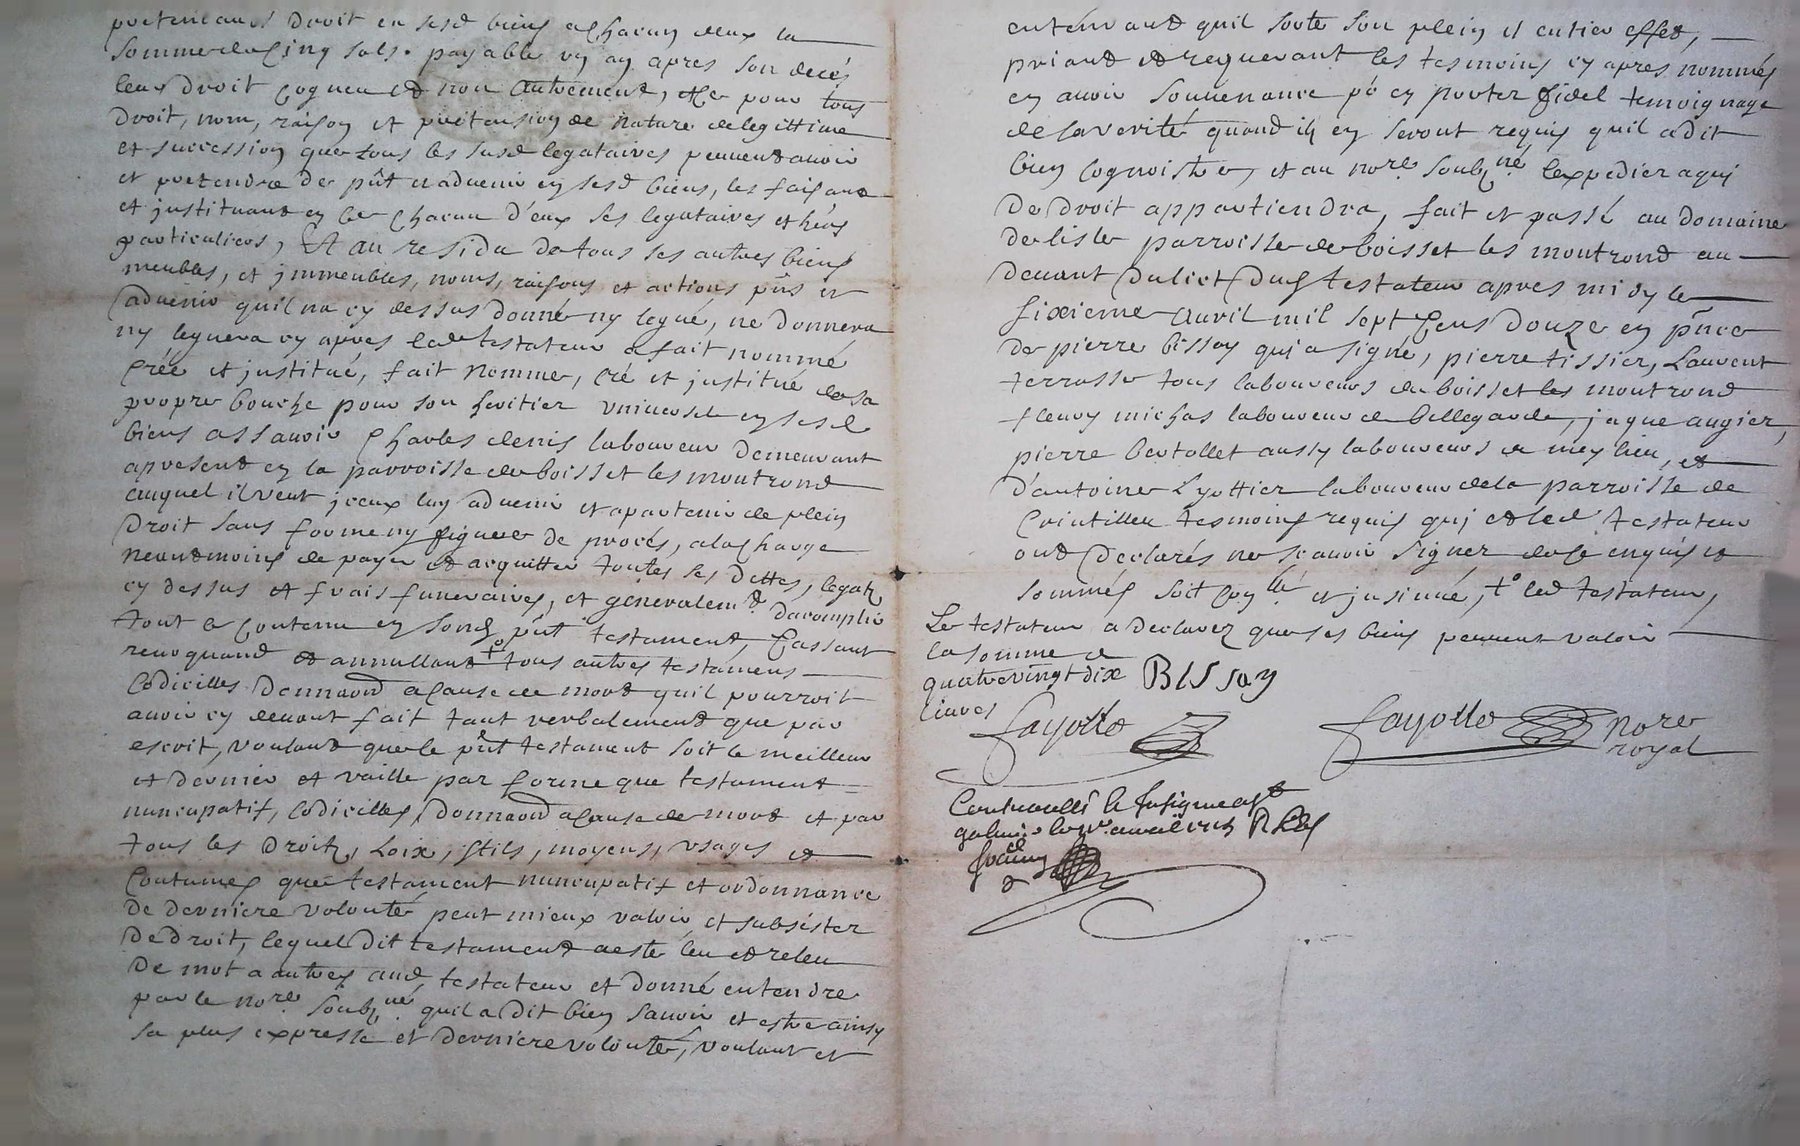 pretendants droit en sesd biens a chacun deux la
somme de cinq sols. payable un an apres son deces
leur droit cogneu et non autrement, et ce pour tous
droit, nom, raison et pretension de nature de legittime
et succession que tous les susd legataires peuvent avoir
et pretendre de pnt et advenir en sesd biens, les faisant
et jnstituant en ce chacun d'eux ses legataires et hers
particuliers, Et au residu de tous ses autres biens
meubles, et jmmeubles, noms, raisons et actions pns et
advenir quil na cy dessus donné ny legué, ne donnera
ny leguera cy apres led testateur a fait nommé
créé et jnstitué, fait nomme, cré et jnstitue de sa
propre bouche pour son heritier universel en sesd
biens assavoir Charles denis laboureur demeurant
apresent en la parroisse de boisset les montrond
auquel il veut jceux luy advenir et apartenir de plein
droit sans forme ny figure de procés, a la charge
neantmoins de payer et acquitter toutes ses dettes, legatz
cy dessus et frais funeraires, et generalemt d'acomplir
tout le contenu en sond pnt testament, Cassant
revoquand et annullant +o tous autres testamens
Codicilles Donnaond a cause de mort quil pourroit
avoir cy devant fait tant verbalement que par
escrit, voulant que le pnt testament soit le meilleur
et dernier et vaille par forme que testament
nuncupatif, Codicilles, Donnaond a cause de mort et par
tous les droitz, Loix, stils, moyens, usages et
Coutumes que testament nuncupatif et ordonnance
de derniere volonté peut mieux valoir et subsister
de droit, lequel dit testament a esté leu et releu
de mot a autres aud testateur et donné entendre
par le nore soubzné quil a dit bien sauoir et estre ainsy
sa plus expresse et derniere volonté, voulant et
entendant quil sorte son plein et entier effet,
priant et requerant les tesmoins cy apres nommés
en avoir souvenance pr en porter fidel temoignage
de la verité quand ils en seront requis quil a dit
bien cognoistre, et au nore soubzné l'expedier a qui
de droit appartiendra, fait et passé au domaine
de lisle parroisse de boisset les montrond au
devant du lict dud testateur apres midy le
sixieme avril mil sept cens douze en pnce
de pierre bissay qui a signé, pierre tissier, Laurent
terrasse tous laboureurs de boisset les montrond
fleury michas laboureur de bellegarde, jaque augier,
pierre bertollet aussy laboureurs de meylieu, et
d'antoine Lyottier laboureur de la parroisse de
Craintilleu tesmoins requis qui et led testateur
ont declarés ne scavoir signer de ce enquis et
sommés soit conllé et jnsinué, +o led testateur,
Le testateur a declarez que ses biens peuvent valoir
la somme de
quatrevingt dix BISSay
livres
fayolle fayolle nore
royal
Controllé & Insigne a st
galmier